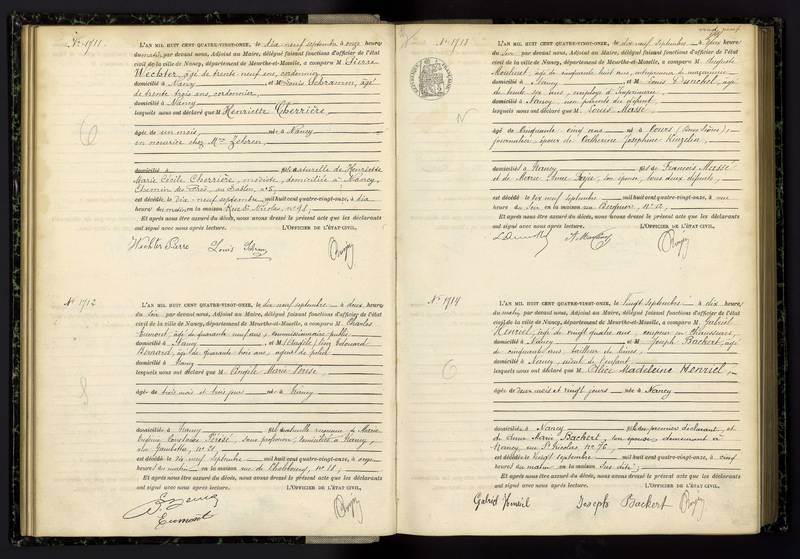 N° 1711.
L'AN MIL HUIT CENT QUATRE-VINGT-ONZE, le dix neuf septembre à onze heures
du matin, par devant nous, Adjoint au Maire, délégué faisant fonctions d'officier de l'état
civil de la ville de Nancy, département de Meurthe-et-Moselle, a comparu M Pierre
Wechter, âgé de trente neuf ans, cordonnier
domicilié à Nancy et M Louis Schramm, âgé
de trente trois ans, cordonnier,
domicilié à Nancy
lesquels nous ont déclaré que M Henriette Cherrière,
âgée de un mois, née à Nancy
en nourrice chez Mme Zehren,
domicilié à fille naturelle de Henriette
Marie Cécile Cherrière, modiste, domiciliée à Nancy,
Chemin des Prés, au Sablon, n° 5,
est décédée le dix-neuf septembre mil huit cent quatre-vingt-onze, à dix
heures du matin, en la maison Rue St Nicolas, n° 98,
Et après nous être assuré du décès, nous avons dressé le présent acte que les déclarants
ont signé avec nous après lecture. L'OFFICIER DE L'ÉTAT CIVIL,
Wechter Pierre Louis
N° 1712
L'AN MIL HUIT CENT QUATRE-VINGT-ONZE, le dix neuf septembre à deux heures
du soir, par devant nous, Adjoint au Maire, délégué faisant fonctions d'officier de l'état
civil de la ville de Nancy, département de Meurthe-et-Moselle, a comparu M Charles
Eumont, âgé de quarante neuf ans, commissionnaire public
domicilié à Nancy, et M Edouard
Bernard, âgé de quarante trois ans, agent de police
domicilié à Nancy
lesquels nous ont déclaré que M Angèle Marie
âgée de trois mois et trois jours née à Nancy
domiciliée à Nancy fille naturelle de Marie
sans profession, domiciliée à Nancy,
rue Gambetta, n° 21,
est décédée le dix neuf septembre mil huit cent quatre-vingt-onze, à onze
heures du matin en la maison rue de n° 18,
Et après nous être assuré du décès, nous avons dressé le présent acte que les déclarants
ont signé avec nous après lecture. L'OFFICIER DE L'ÉTAT CIVIL,
Eumont
N° 1713
L'AN MIL HUIT CENT QUATRE-VINGT-ONZE, le dix neuf septembre à deux heures
du soir, par devant nous, Adjoint au Maire, délégué faisant fonctions d'officier de l'état
civil de la ville de Nancy, département de Meurthe-et-Moselle, a comparu M Auguste
âgé de cinquante huit ans, entrepreneur de maçonnerie
domicilié à Nancy et M Louis âgé
de trente six ans, employé d'Imprimerie,
domicilié à Nancy non parents du défunt
lesquels nous ont déclaré que M Louis Massé
âgé de cinquante cinq ans né à Tours
journalier, époux de Catherine Joséphine
domicilié à Nancy fils de François Massé
et de Marie Anne son épouse, tous deux défunts,
est décédé le dix neuf septembre mil huit cent quatre-vingt-onze, à une
heure du soir en la maison n° 12,
Et après nous être assuré du décès, nous avons dressé le présent acte que les déclarants
ont signé avec nous après lecture. L'OFFICIER DE L'ÉTAT CIVIL,
N° 1714
L'AN MIL HUIT CENT QUATRE-VINGT-ONZE, le vingt septembre à dix heures
du matin, par devant nous, Adjoint au Maire, délégué faisant fonctions d'officier de l'état
civil de la ville de Nancy, département de Meurthe-et-Moselle, a comparu M Gabriel
Henriel, âgé de vingt quatre ans, coupeur en chaussures,
domicilié à Nancy et M Joseph Backert, âgé
de cinquante ans, tailleur de limes,
domicilié à Nancy, aïeul de l'enfant
lesquels nous ont déclaré que M Alice Madeleine Henriel,
âgée de deux mois et vingt jours née à Nancy
domiciliée à Nancy fille du premier déclarant, et
de dame Marie Backert, son épouse, demeurant à
Nancy, rue St Nicolas n° 76,
est décédée le vingt septembre mil huit cent quatre-vingt-onze, à cinq
heures du matin en la maison sus dite,
Et après nous être assuré du décès, nous avons dressé le présent acte que les déclarants
ont signé avec nous après lecture. L'OFFICIER DE L'ÉTAT CIVIL,
Gabriel Henriel Joseph Backert